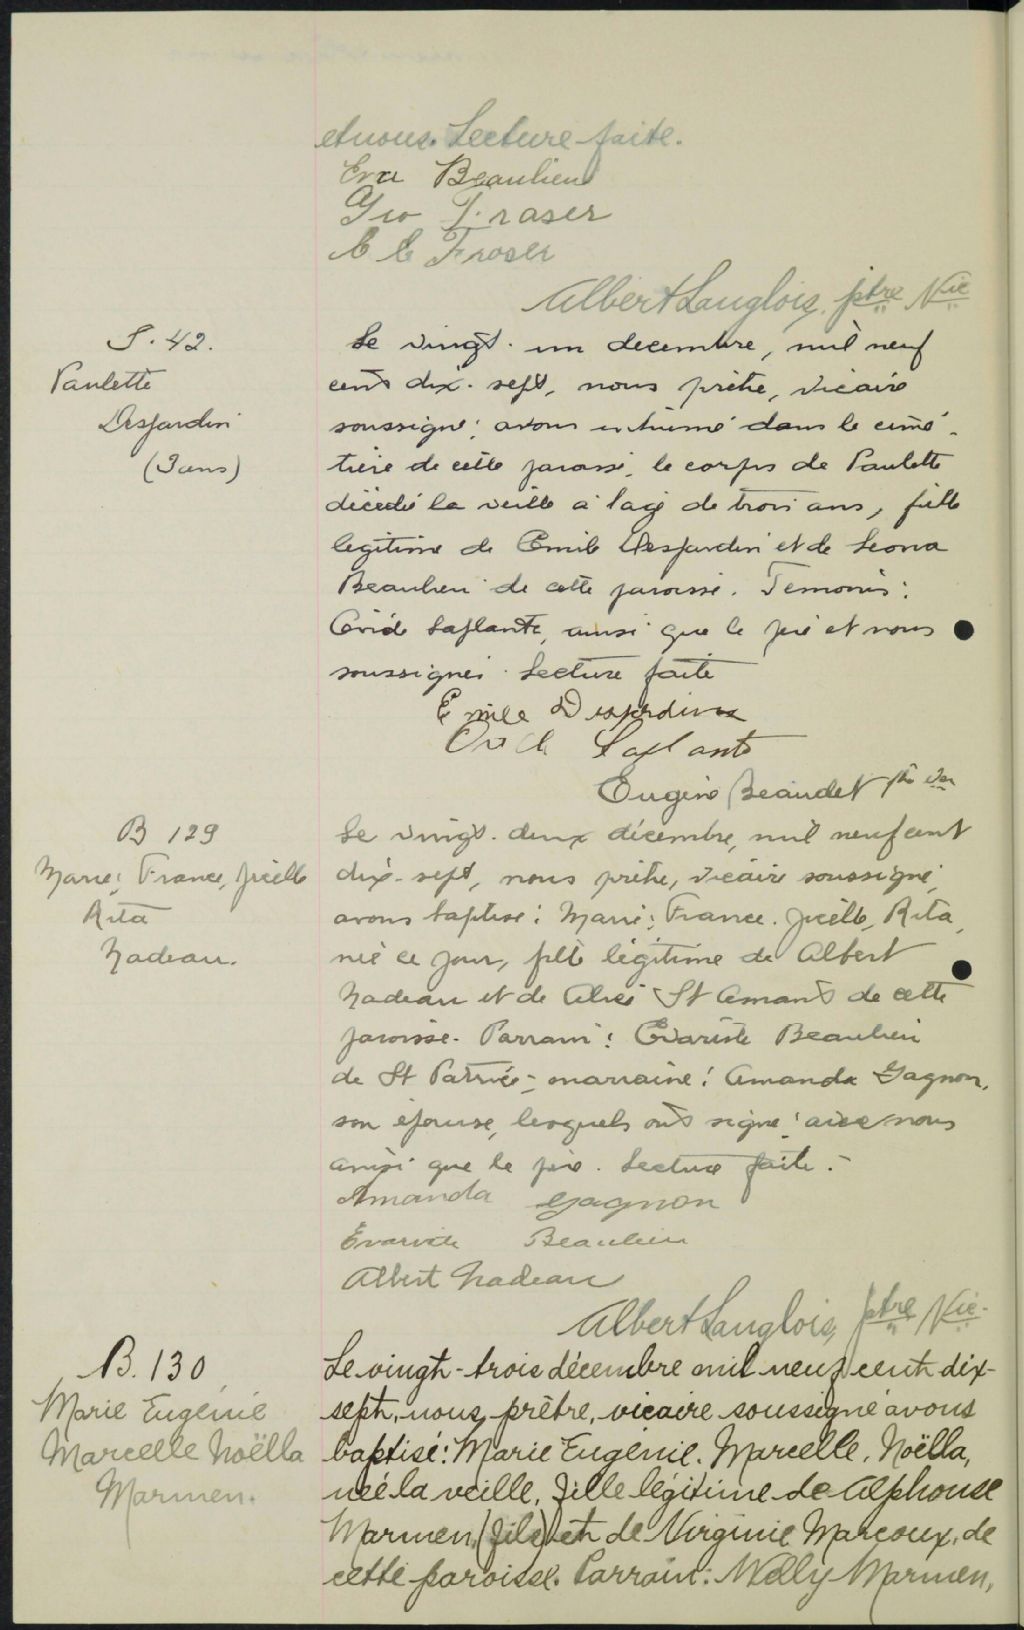 et nous. Lecture faite.
Eva Beaulieu
Geo Fraser
C C Fraser
Albert Langlois, ptre Vic
S. 42.
Paulette
Desjardin
(3 ans)
Le vingt-un decembre, mil neuf
cent dix-sept, nous prêtre, vicaire
soussigné, avons inhumé dans le cime-
tière de cette paroisse, le corps de Paulette
décédé la veille à l'age de trois ans, fille
legitime de Emile Desjardin et de Leona
Beaulieu de cette paroisse. Temoins:
Ovide Laplante, ainsi que le père et nous
soussignés. Lecture faite
Emile Desjardins
Ovide Laplante
Eugène Beaudet ptre Vic
B 129
Marie, France, Joëlle
Rita
Nadeau.
Le vingt-deux décembre, mil neuf cent
dix-sept, nous prêtre, vicaire soussigné,
avons baptisé: Marie, France, Joëlle, Rita,
née ce jour, fille légitime de Albert
Nadeau et de Alice St Amant de cette
paroisse. Parrain: Evariste Beaulieu
de St Patrice - marraine: Amanda Gagnon,
son épouse, lesquels ont signé avec nous
ainsi que le père. Lecture faite.-
Amanda Gagnon
Evariste Beaulieu
Albert Nadeau
Albert Langlois, ptre Vic.
B. 130
Marie Eugénie
Marcelle Noëlla
Marmen.
Le vingt-trois décembre mil neuf cent dix-
sept, nous, prêtre, vicaire soussigné avons
baptisé: Marie Eugénie, Marcelle, Noëlla,
née la veille, fille légitime de Alphonse
Marmen, (fils) et de Virginie Marcoux, de
cette paroisse. Parrain: Willy Marmen,